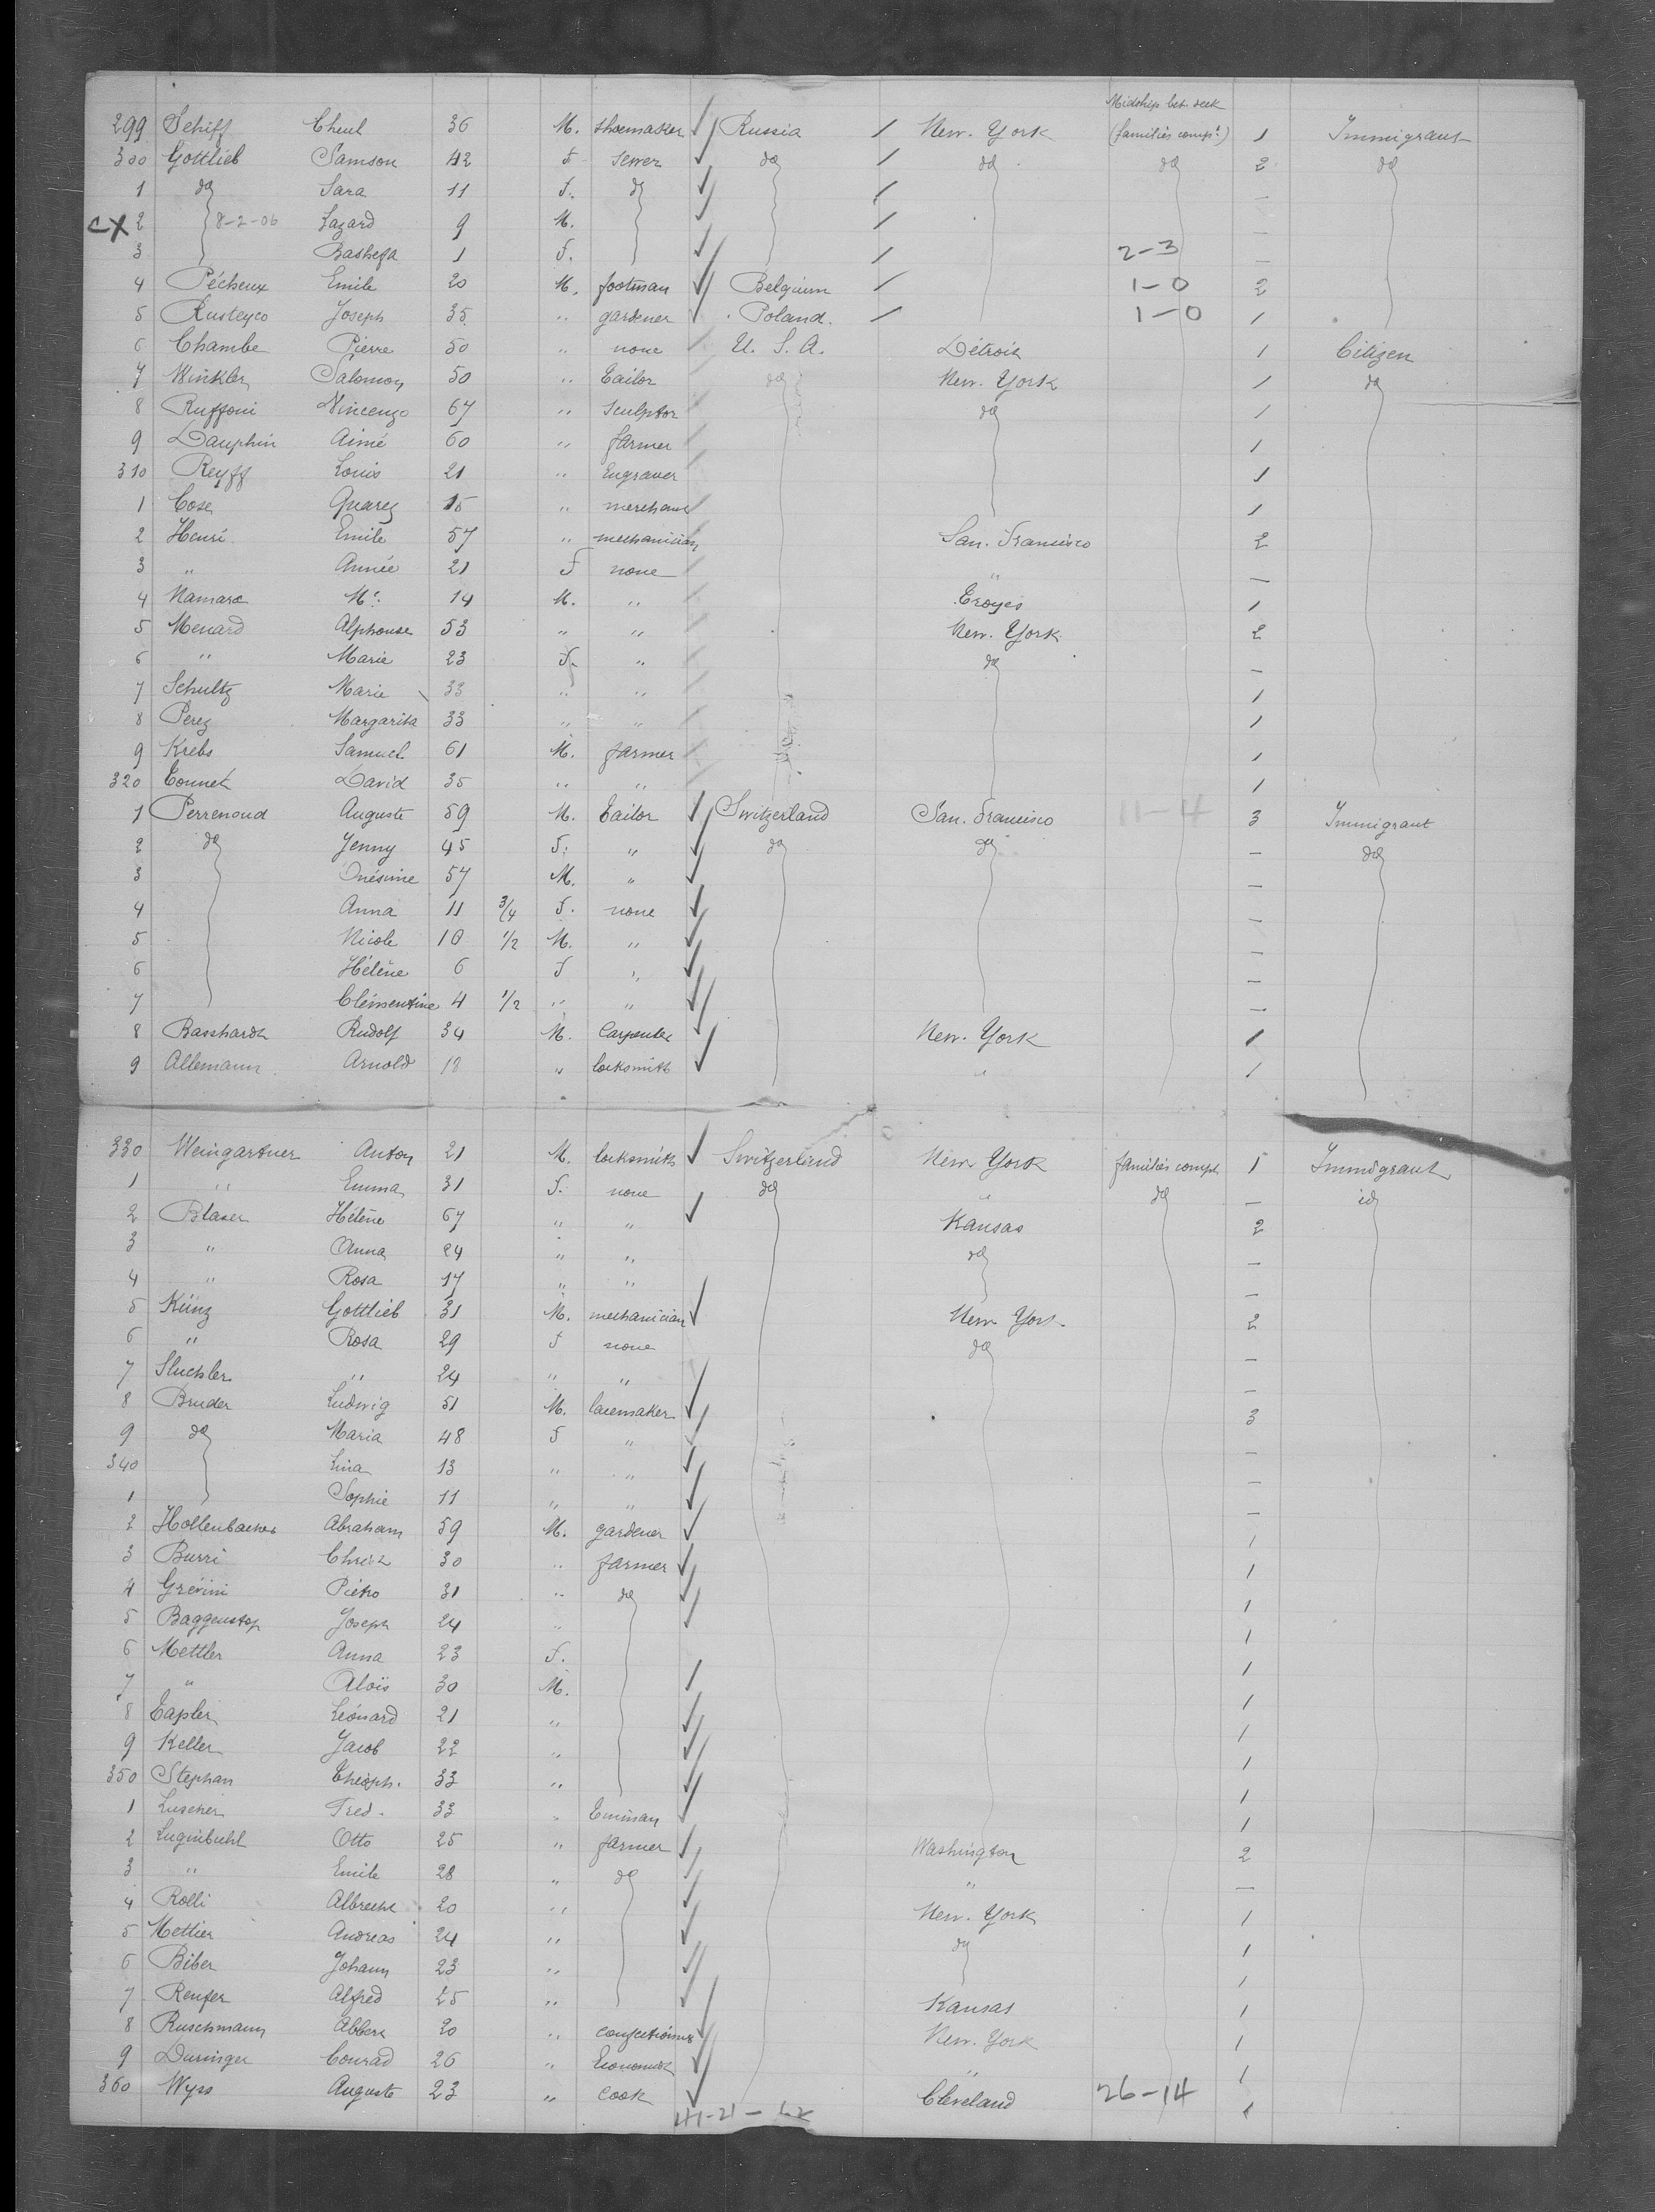 Midship bet. deck
299 Schiff Cheul 36 M. shoemaker Russia New. York (families comp.t) 1 Immigrant
300 Gottlieb Samson 42 F sewer do do do 2 do
1 do Sara 11 F. do —
cx 2 8-2-06 Lazard 9 M. —
3 Bashefa 1 F. 2-3 —
4 Pécheux Emile 20 M. footman Belgium 1-0 2
5 Rusteyco Joseph 35 " gardener Poland. 1-0 1
6 Chambe Pierre 50 " none U. S. A. Détroit 1 Citizen
7 Winkler Salomon 50 " Tailor do New. York 1 do
8 Ruffoni Vincenzo 67 " Sculptor do 1
9 Dauphin Aimé 60 " farmer 1
310 Reyff Louis 21 " Engraver 1
1 Cose Quarez 15 " merchant 1
2 Henri Emile 57 " mechanician San. Francisco 2
3 " Année 21 F none " —
4 Namara Mc 14 M. " Troyes 1
5 Menard Alphonse 53 " " New. York. 2
6 " Marie 23 F. " do —
7 Schultz Marie 33 " " 1
8 Perez Margarita 33 " " 1
9 Krebs Samuel 61 M. farmer 1
320 Tonnet David 35 " " 1
1 Perrenoud Auguste 59 M. Tailor Switzerland San. Francisco 11-4 3 Immigrant
2 do Jenny 45 F. " do do — do
3 Onésime 57 M. " —
4 Anna 11 3/4 F. none —
5 Nicole 10 1/2 M. " —
6 Hélène 6 F " —
7 Clémentine 4 1/2 " " —
8 Basshardt Rudolf 34 M. Carpenter New. York 1
9 Allemann Arnold 18 " locksmith " 1
330 Weingartner Anton 21 M. locksmith Switzerland New York families compt 1 Immigrant
1 " Emma 31 F. none do " do — id
2 Blaser Hélène 67 " " Kansas 2
3 " Anna 24 " " do —
4 " Rosa 17 " " —
5 Künz Gottlieb 31 M. mechanician New York 2
6 " Rosa 29 F none do —
7 Sluchler " 24 " " —
8 Bruder Ludwig 51 M. lacemaker 3
9 do Maria 48 F " —
340 Lina 13 " " —
1 Sophie 11 " " —
2 Hollenbacher Abraham 59 M. gardener 1
3 Burri Christ 30 " farmer 1
4 Grévini Piétro 31 " do 1
5 Baggenstop Joseph 24 " 1
6 Mettler Anna 23 F. 1
7 " Aloïs 30 M. 1
8 Tapler Léonard 21 " 1
9 Keller Jacob 22 " 1
350 Stephan Théoph. 33 " 1
1 Luscher Fred. 33 " 1
2 Luginbuehl Otto 25 " farmer Washington 2
3 " Emile 28 " do " —
4 Rolli Albrecht 20 " New. York 1
5 Mettier Andreas 24 " do 1
6 Biber Johann 23 " 1
7 Renfer Alfred 25 " Kansas 1
8 Ruschmann Albert 20 " New. York 1
9 Duringer Conrad 26 " Economist " 1
360 Wyss Auguste 23 " cook Cleveland 26-14 1